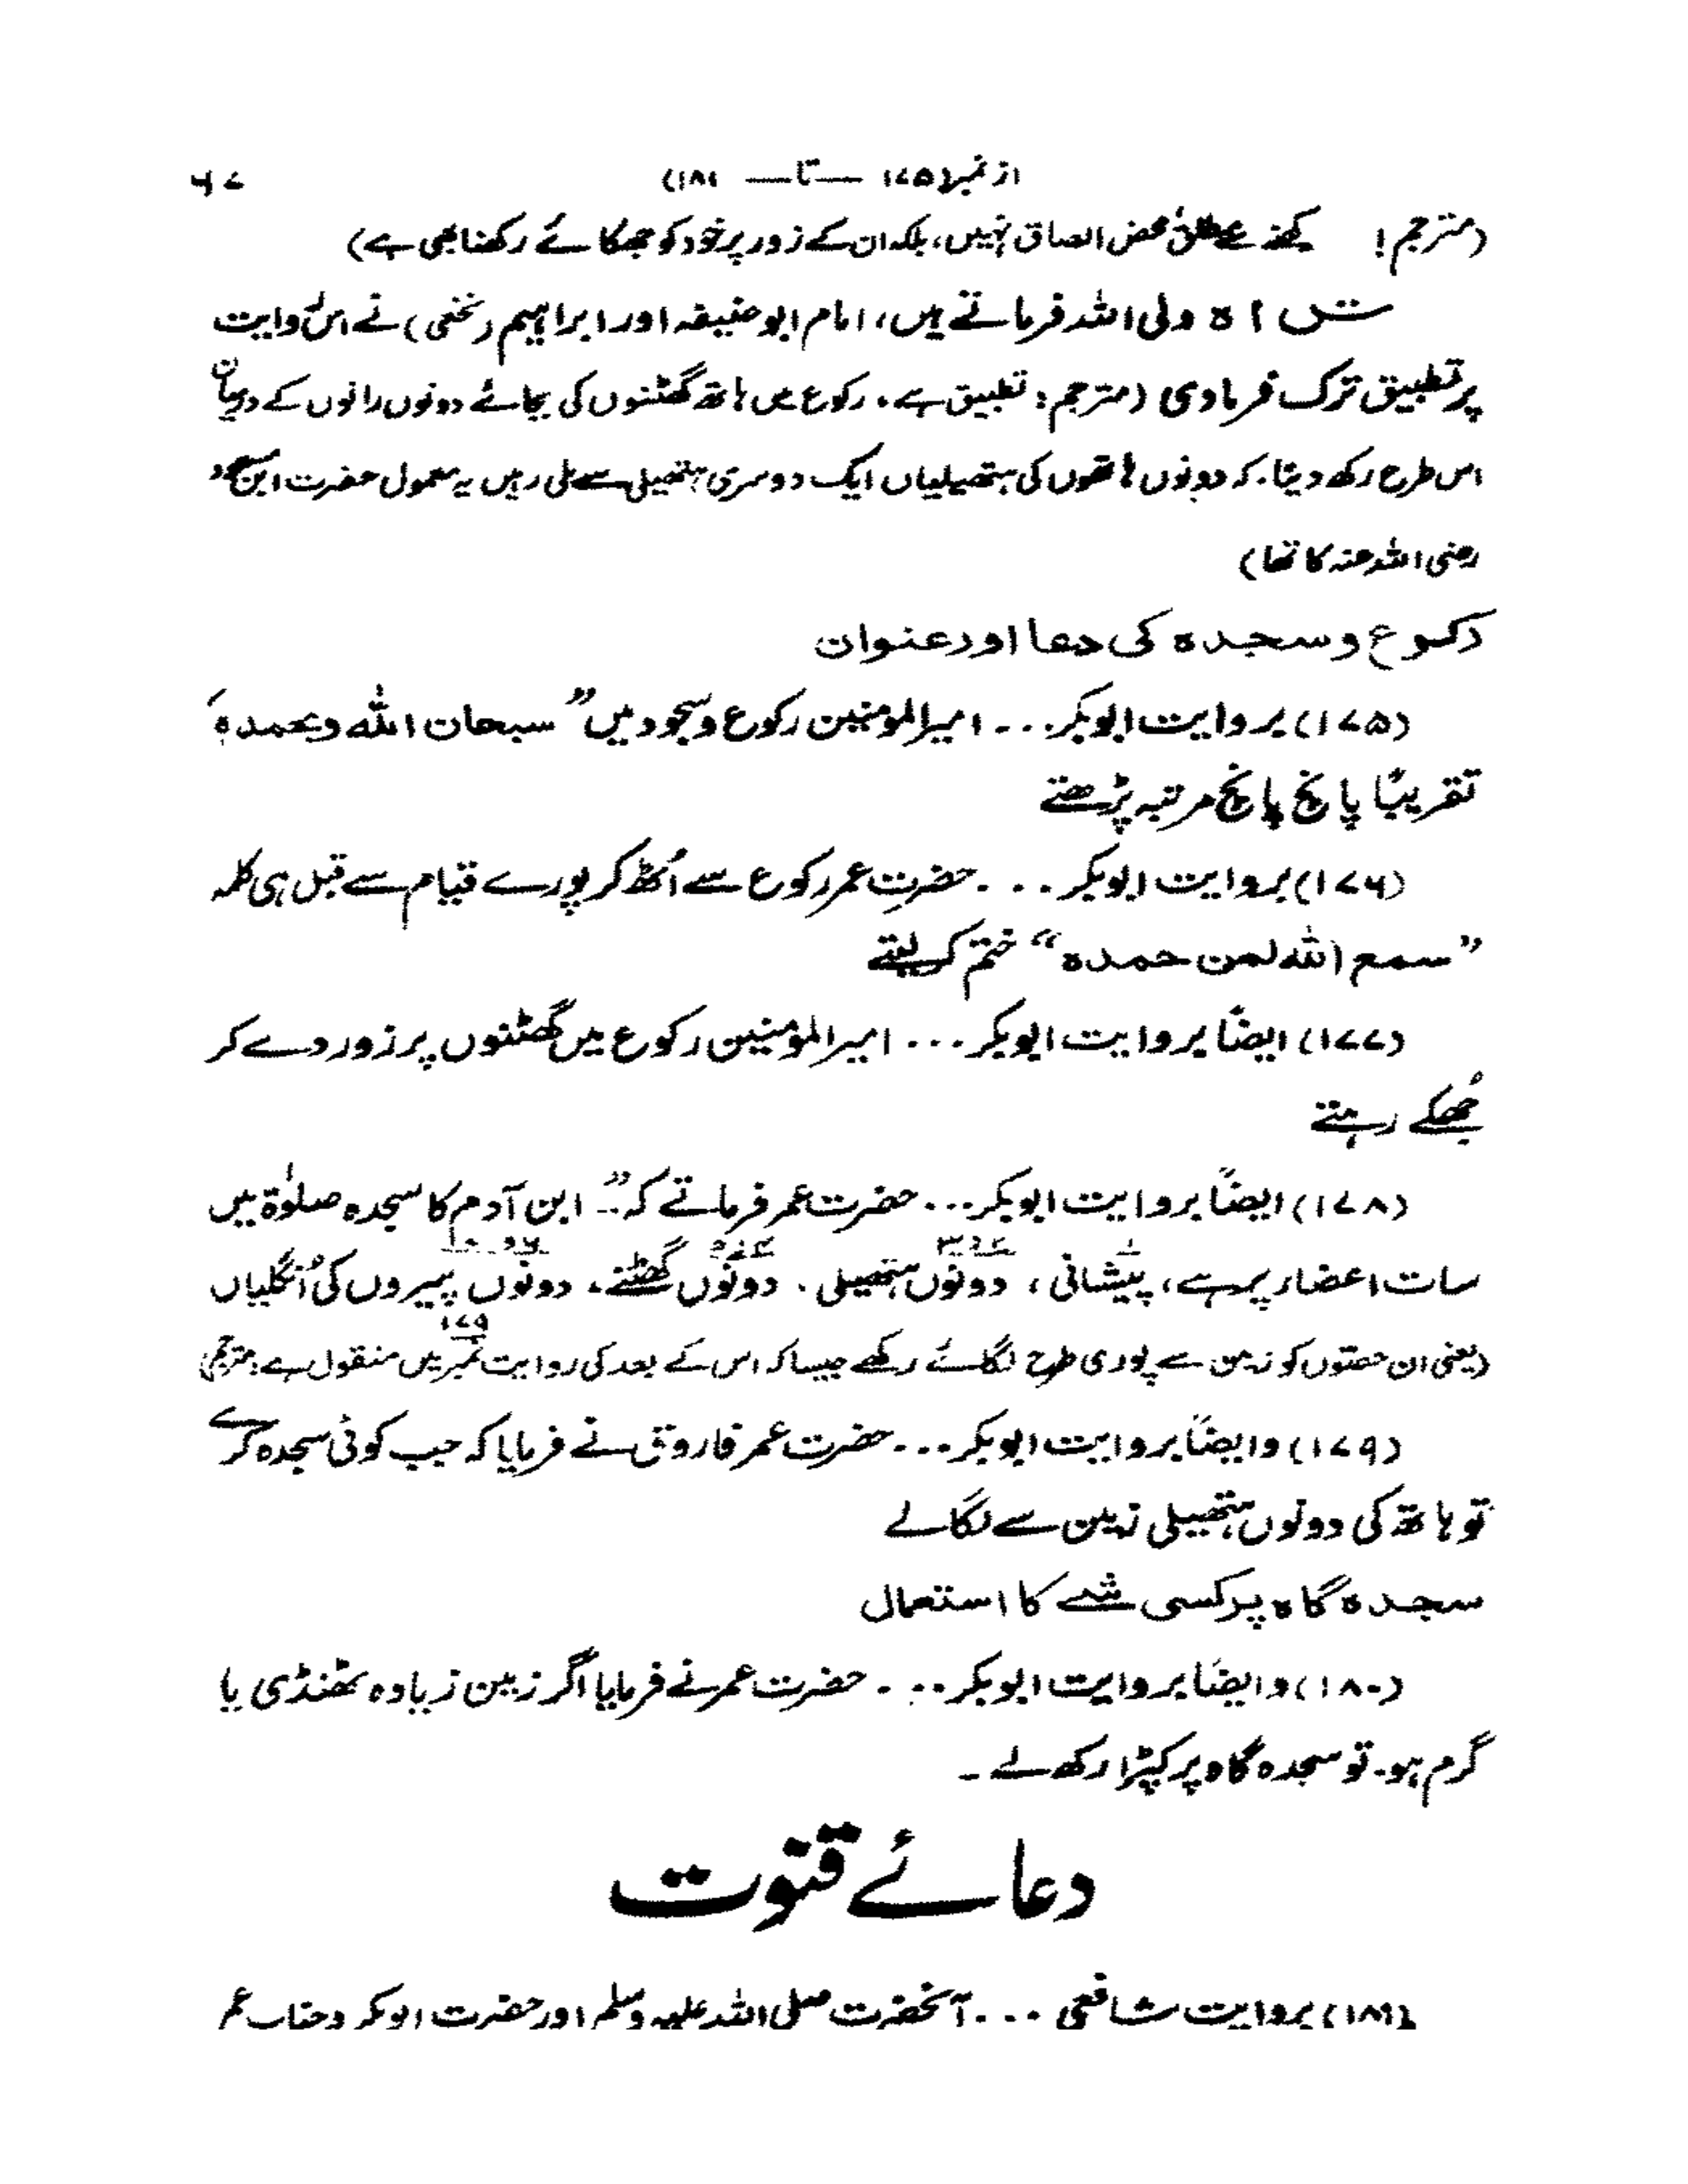 از نمبر(۱۷۵ — تا — ۱۸۱)
۶۷
(مترجم! محض الصاق نہیں، بلکہ ان کے زور پر خود کو جھکائے رکھنا بھی ہے)
شاہ ولی اللہ فرماتے ہیں، امام ابو حنیفہ اور ابراہیم (نخعی) نے اس روایت
پر تطبیق ترک فرما دی (مترجم: تطبیق ہے۔ رکوع میں ہاتھ گھٹنوں کی بجائے دونوں رانوں کے درمیان
اس طرح رکھ دینا۔ کہ دونوں ہاتھوں کی ہتھیلیاں ایک دوسری ہتھیلی سے ملی رہیں یہ معمول حضرت ابن مسعود
رضی اللہ عنہ کا تھا)
رکوع وسجدہ کی دعا اور عنوان
(۱۷۵) بروایت ابوبکر... امیرالمومنین رکوع وسجود میں ”سبحان اللہ وبحمدہ“
تقریبًا پانچ پانچ مرتبہ پڑھتے
(۱۷۶) بروایت ابوبکر... حضرتِ عمر رکوع سے اُٹھ کر پورے قیام سے قبل ہی کلمہ
”سمع اللہ لمن حمدہ“ ختم کر لیتے
(۱۷۷) ایضًا بروایت ابوبکر... امیرالمؤمنین رکوع میں گھٹنوں پر زور دے کر
جُھکے رہتے
(۱۷۸) ایضًا بروایت ابوبکر... حضرت عمر فرماتے کہ ”ابن آدم کا سجدہ صلوٰۃ میں
سات اعضار پر ہے، پیشانی، دونوں ہتھیلی۔ دونوں گھٹنے۔ دونوں پیروں کی اُنگلیاں
(یعنی ان حصّوں کو زمین سے پوری طرح لگائے رکھے جیسا کہ اس کے بعد کی روایت نمبر ۱۷۹ میں منقول ہے: مترجم)
(۱۷۹) وایضًا بروایت ابوبکر... حضرت عمر فاروق نے فرمایا کہ جب کوئی سجدہ کرے
تو ہاتھ کی دونوں ہتھیلی زمین سے لگالے
سجدہ گاہ پر کسی شے کا استعمال
(۱۸۰) وایضًا بروایت ابوبکر... حضرت عمر نے فرمایا اگر زمین زیادہ ٹھنڈی یا
گرم ہو۔ تو سجدہ گاہ پر کپڑا رکھ لے۔
دعائے قنوت
(۱۸۱) بروایت شافعی... آنحضرت صلی اللہ علیہ وسلم اور حضرت ابوبکر وجناب عمر